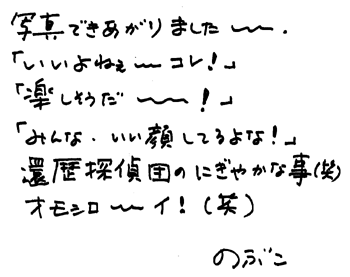 写真できあがりました〜〜.
「いいよねぇ〜コレ！」
「楽しそうだ〜〜！」
「みんな．いい顔してるよな！」
還歴探偵団のにぎやかな事(笑)
オモシロ〜〜イ！(笑)
のぶこ